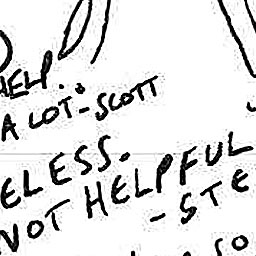 HELP.
A LOT:-SCOTT
ELESS.
NOT HELPFUL
-STE
SO